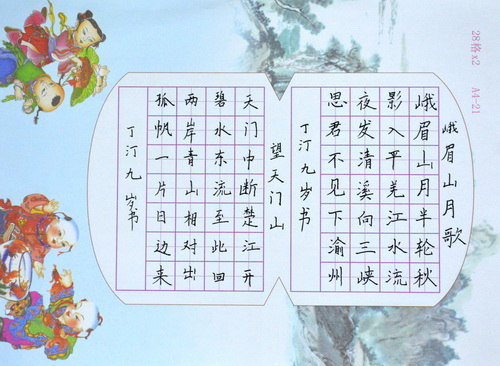 峨眉山月歌
峨眉山月半轮秋
影入平羌江水流
夜发清溪向三峡
思君不见下渝州
丁汀九岁书
望天门山
天门中断楚江开
碧水东流至此回
两岸青山相对出
孤帆一片日边来
丁汀九岁书
28格x2 A4-21